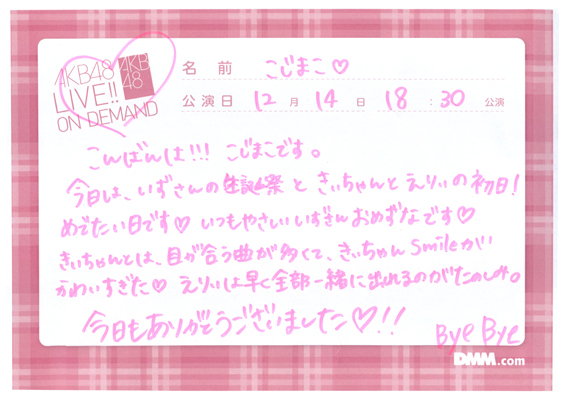 AKB48
LIVE!!
ON DEMAND
AKB
48
名 前 こじまこ♡
公演日 12 月 14 日 18 : 30 公演
こんばんは!!! こじまこです。
今日は、いずさんの生誕祭ときぃちゃんとえりぃの初日!
めでたい日です♡ いつもやさしいいずさんおめずなです♡
きぃちゃんとは、目が合う曲が多くて、きぃちゃんsmileがい
かわいすぎた♡ えりぃは早く全部一緒に出れるのがたのしみ。
今日もありがとうございました♡!!
Bye Bye
DMM.com